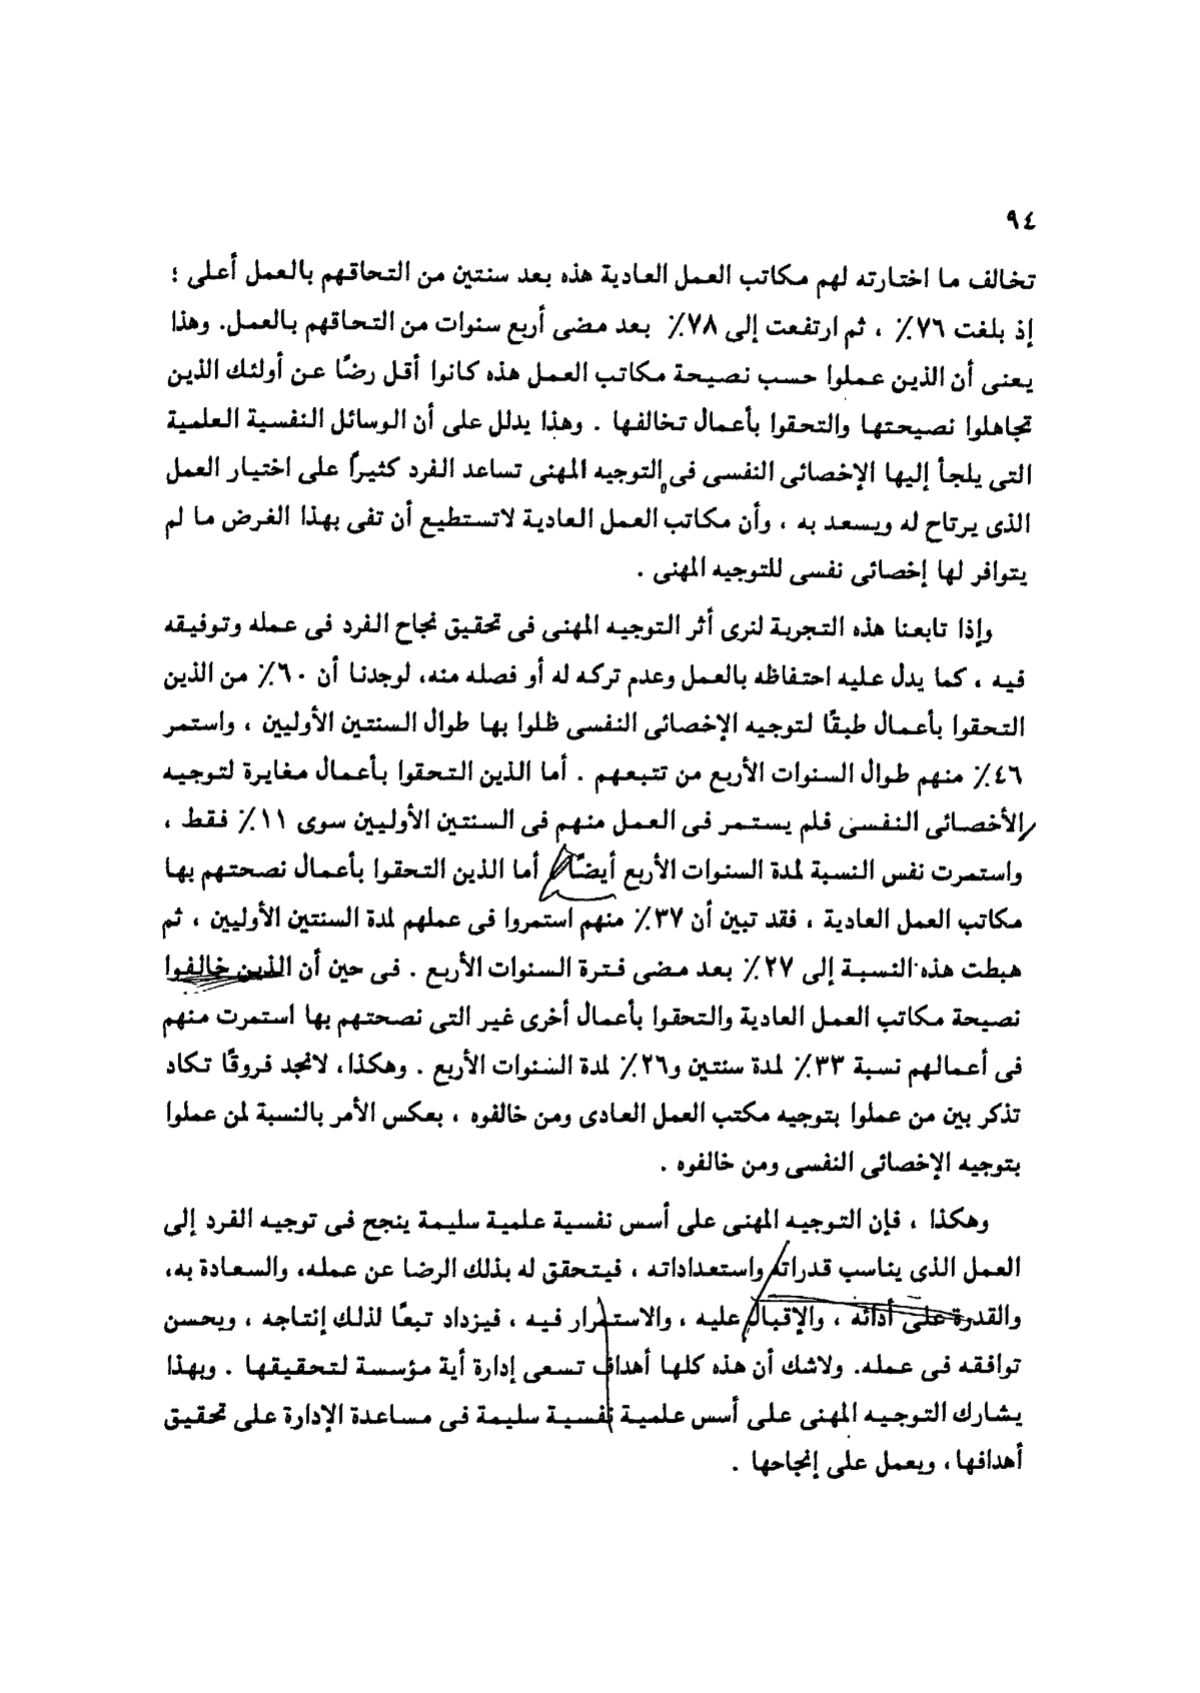 ٩٤
تخالف ما اختارته لهم مكاتب العمل العادية هذه بعد سنتين من التحاقهم بالعمل أعلى ؛
إذ بلغت ٧٦٪ ، ثم ارتفعت إلى ٧٨٪ بعد مضى أربع سنوات من التحاقهم بالعمل. وهذا
يعنى أن الذين عملوا حسب نصيحة مكاتب العمل هذه كانوا أقل رضًا عن أولئك الذين
تجاهلوا نصيحتها والتحقوا بأعمال تخالفها . وهذا يدلل على أن الوسائل النفسية العلمية
التى يلجأ إليها الإخصائى النفسى فى التوجيه المهنى تساعد الفرد كثيرًا على اختيار العمل
الذى يرتاح له ويسعد به ، وأن مكاتب العمل العادية لاتستطيع أن تفى بهذا الغرض ما لم
يتوافر لها إخصائى نفسى للتوجيه المهنى .
وإذا تابعنا هذه التجربة لنرى أثر التوجيه المهنى فى تحقيق نجاح الفرد فى عمله وتوفيقه
فيه ، كما يدل عليه احتفاظه بالعمل وعدم تركه له أو فصله منه، لوجدنا أن ٦٠٪ من الذين
التحقوا بأعمال طبقًا لتوجيه الإخصائى النفسى ظلوا بها طوال السنتين الأوليين ، واستمر
٤٦٪ منهم طوال السنوات الأربع من تتبعهم . أما الذين التحقوا بأعمال مغايرة لتوجيه
الأخصائى النفسى فلم يستمر فى العمل منهم فى السنتين الأوليين سوى ١١٪ فقط ،
واستمرت نفس النسبة لمدة السنوات الأربع أيضًا أما الذين التحقوا بأعمال نصحتهم بها
مكاتب العمل العادية ، فقد تبين أن ٣٧٪ منهم استمروا فى عملهم لمدة السنتين الأوليين ، ثم
هبطت هذه النسبة إلى ٢٧٪ بعد مضى فترة السنوات الأربع . فى حين أن الذين خالفوا
نصيحة مكاتب العمل العادية والتحقوا بأعمال أخرى غير التى نصحتهم بها استمرت منهم
فى أعمالهم نسبة ٣٣٪ لمدة سنتين و٢٦٪ لمدة السنوات الأربع . وهكذا، لانجد فروقًا تكاد
تذكر بين من عملوا بتوجيه مكتب العمل العادى ومن خالفوه ، بعكس الأمر بالنسبة لمن عملوا
بتوجيه الإخصائى النفسى ومن خالفوه .
وهكذا ، فإن التوجيه المهنى على أسس نفسية علمية سليمة ينجح فى توجيه الفرد إلى
العمل الذى يناسب قدراته واستعداداته ، فيتحقق له بذلك الرضا عن عمله، والسعادة به،
والقدرة على أدائه ، والإقبال عليه ، والاستمرار فيه ، فيزداد تبعًا لذلك إنتاجه ، ويحسن
توافقه فى عمله. ولاشك أن هذه كلها أهداف تسعى إدارة أية مؤسسة لتحقيقها . وبهذا
يشارك التوجيه المهنى على أسس علمية نفسية سليمة فى مساعدة الإدارة على تحقيق
أهدافها ، ويعمل على إنجاحها .